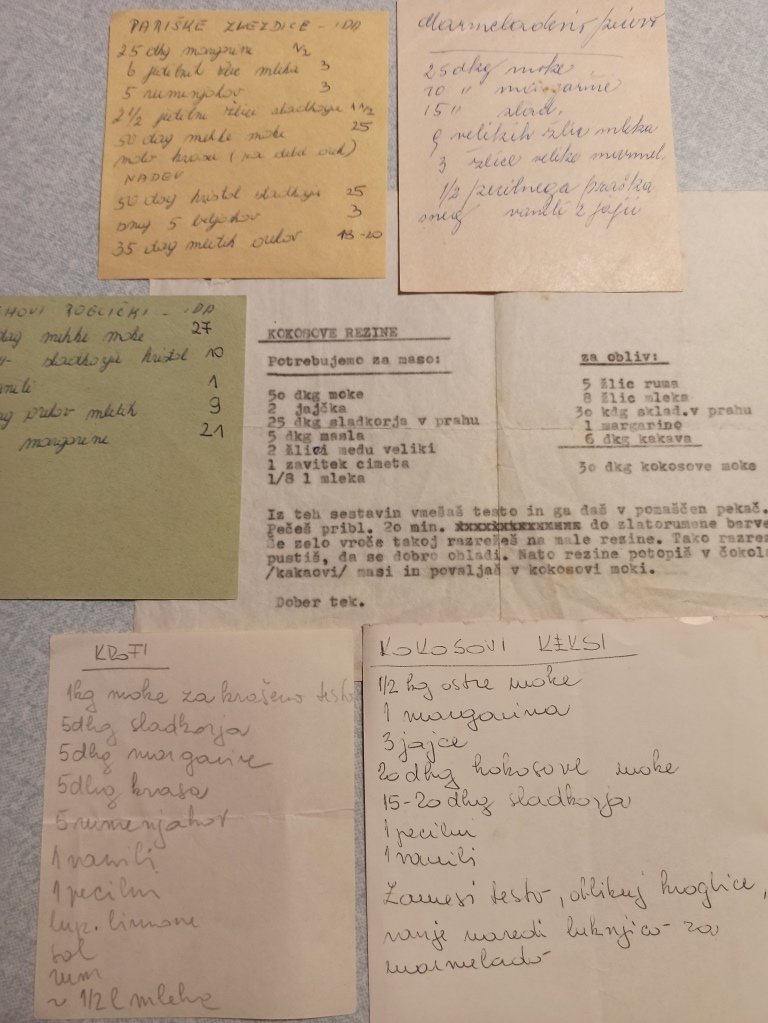 PARIŠKE ZVEZDICE - IDA
25 dkg margarine 1/2
6 jedilnih žlic mleka 3
5 rumenjakov 3
2 1/2 jedilne žlice sladkorja 1 1/2
50 dag mehke moke 25
malo kvasa (na debel oreh)
NADEV
50 dag kristol sladkorja 25
sneg 5 beljakov 3
35 dag mletih orehov 18-20
Marmeladeno pecivo
25 dkg moke
10 " masti
15 " slad.
9 velikih žlic mleka
3 žlice velike marmel.
1/2 pecilnega praška
sneg vanili 2 jajc
HOVI ROGLIČKI - IDA
dag mehke moke 27
sladkorja kristol 10
anili 1
ag orehov mletih 9
margarine 21
KOKOSOVE REZINE
Potrebujemo za maso:
50 dkg moke
2 jajčka
25 dkg sladkorja v prahu
5 dkg masla
2 žlici medu veliki
1 zavitek cimeta
1/8 l mleka
za obliv:
5 žlic ruma
8 žlic mleka
30 kdg sklad.v prahu
1 margarino
6 dkg kakava
30 dkg kokosove moke
Iz teh sestavin vmešaš testo in ga daš v pomaščen pekač.
Pečeš pribl. 20 min. xxxxxxxxxxxxxxx do zlatorumene barve
še zelo vroče takoj razrežeš na male rezine. Tako razrez
pustiš, da se dobro ohladi. Nato rezine potopiš v čokola
/kakaovi/ masi in povaljaš v kokosovi moki.
Dober tek.
KROFI
1kg moke za krašeno testo
5dkg sladkorja
5dkg margarine
5dkg kvasa
5 rumenjakov
1 vanili
1 pecilni
lup. limone
sol
rum
1/2 l mleka
KOKOSOVI KEKSI
1/2 kg ostre moke
1 margarina
3 jajce
20 dkg kokosove moke
15-20 dkg sladkorja
1 pecilni
1 vanili
Zamesi testo, oblikuj kroglice,
vanje naredi luknjico za
marmelado